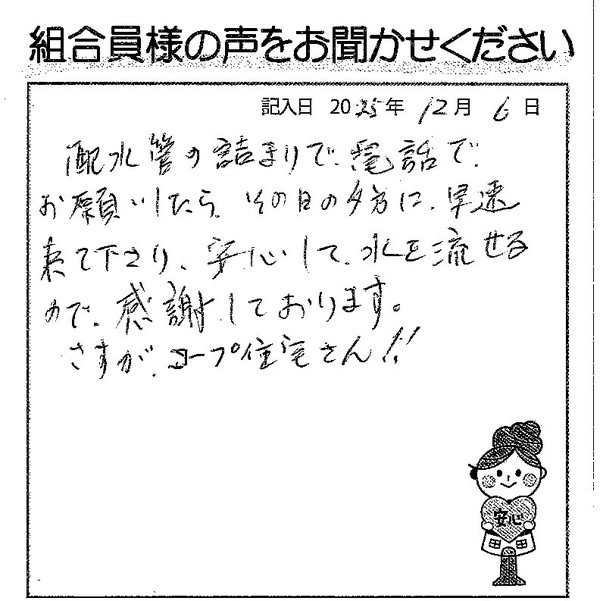 組合員様の声をお聞かせください
記入日 2025年 12月 6日
配水管の詰まりで、電話で、
お願いしたら、その日の夕方に、早速
来て下さり、安心して、水を流せる
ので、感謝しております。
さすが、コープ住宅さん!!
安心